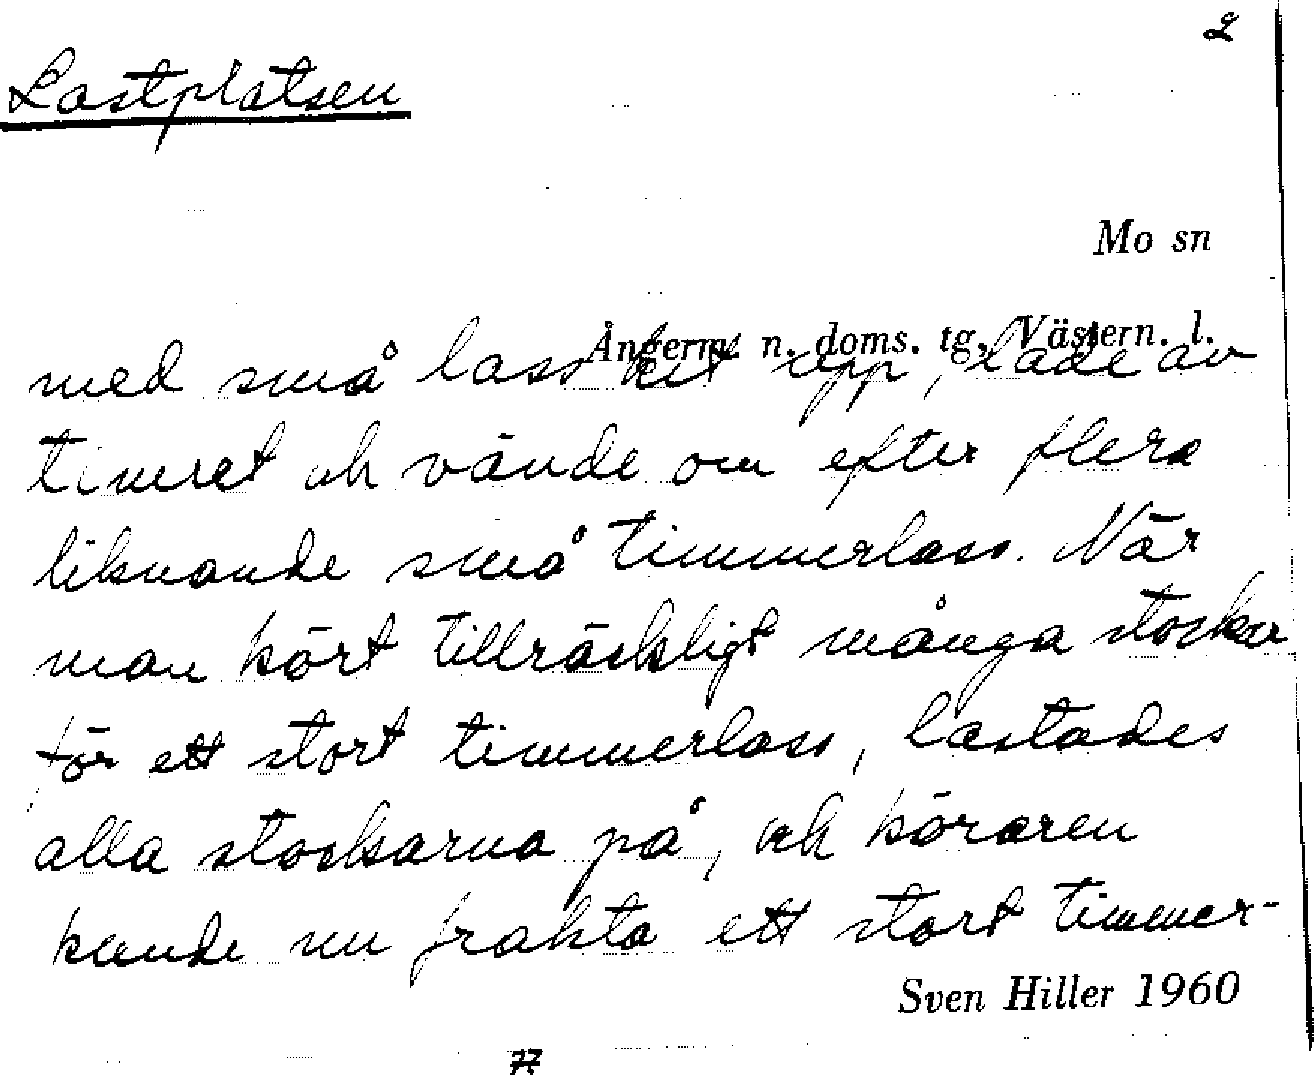 2
Lastplatsen
Mo sn
Ångerm. n. doms. tg, Västern. l.
med små lass hit upp, lade av
timret och vände om efter flera
liknande små timmerlass. När
man kört tillräckligt många stockar
för ett stort timmerlass, lastades
alla stockarna på, och köraren
kunde nu frakta ett stort timmer-
Sven Hiller 1960
77